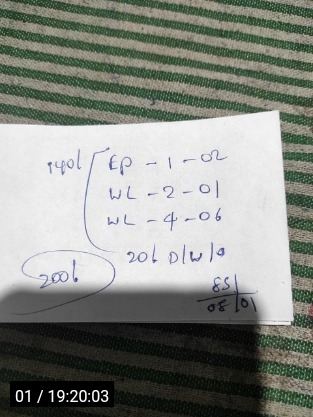 EP - 1 - 02
WL - 2 - 01
WL - 4 - 06
206 D/W/o
2006
08/01
01 / 19:20:03